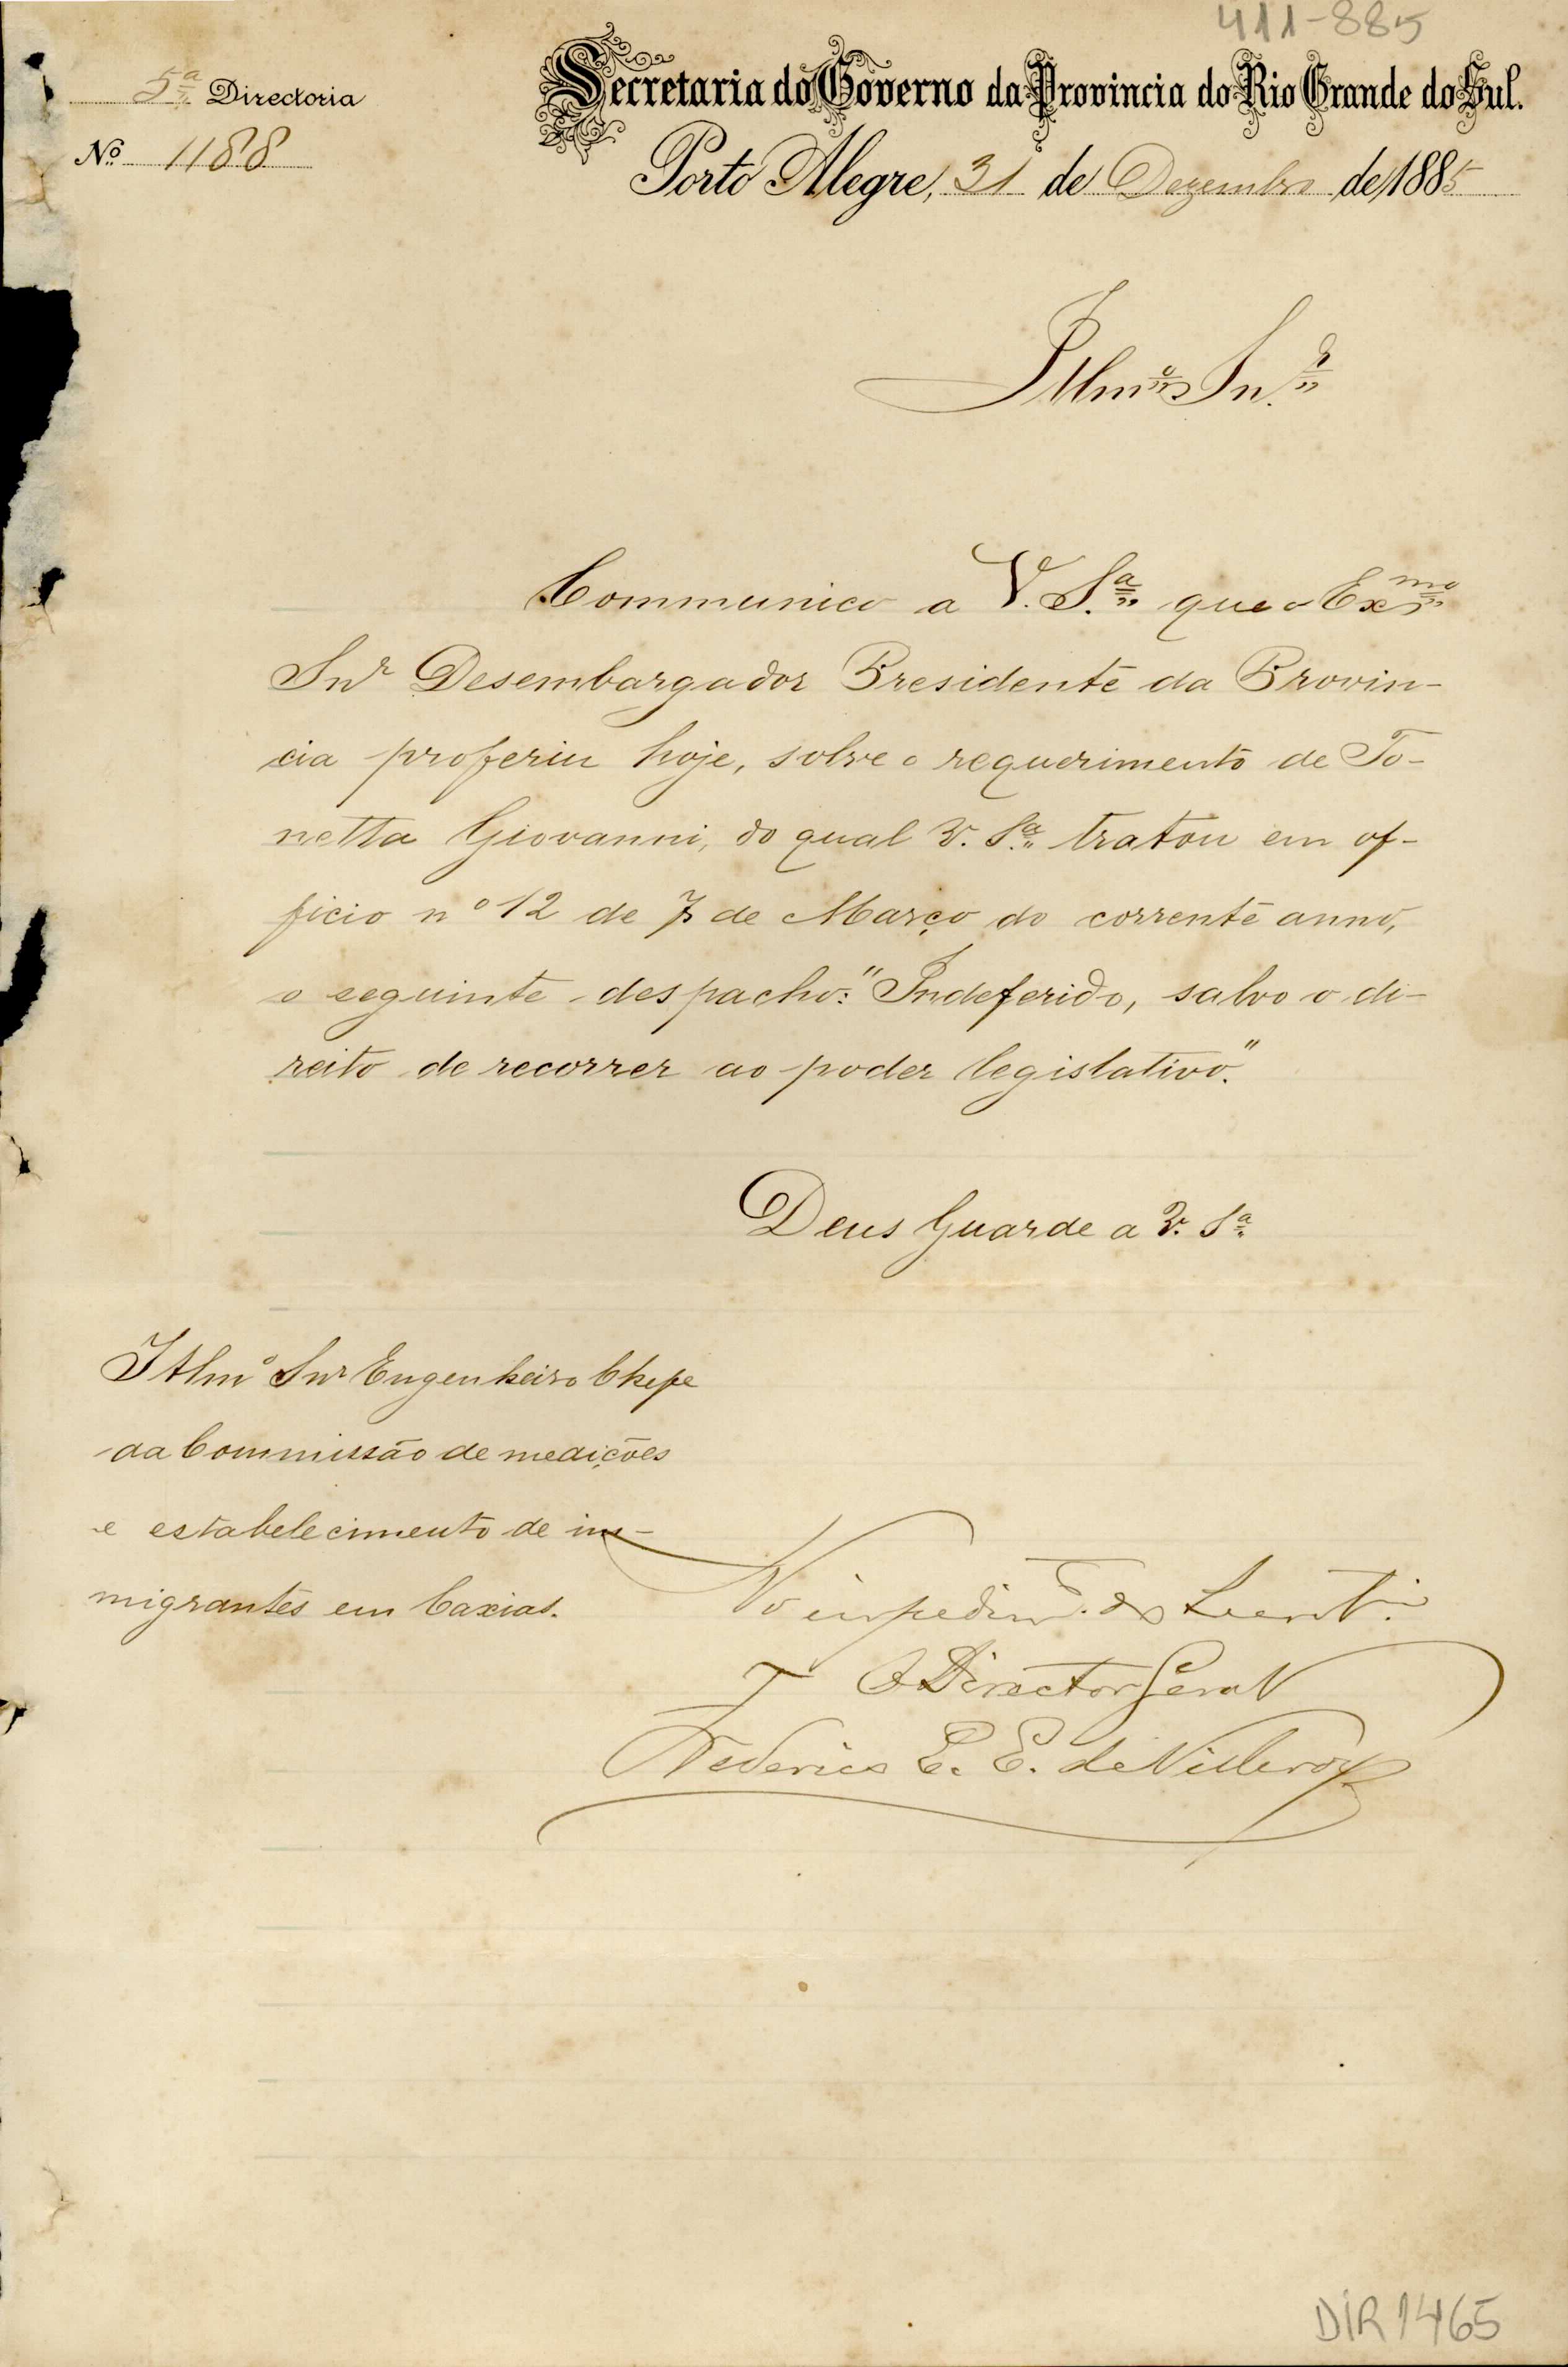 411-885
5ª Directoria
Secretaria do Governo da Provincia do Rio Grande do Sul.
Nº 1188
Porto Alegre, 31 de Dezembro de 1885
Illmº Snr.
Communico a V. Sª que o Exmo
Snr Desembargador Presidente da Provin-
cia proferiu hoje, sobre o requerimento de To-
netta Giovanni, do qual V. Sª tratou em of-
ficio nº 12 de 7 de Março do corrente anno,
o seguinte despacho: "Indeferido, salvo o di-
reito de recorrer ao poder legislativo."
Deus Guarde a V. Sª
Illmº Snr Engenheiro Chefe
da Commissão de medições
e estabelecimento de im-
migrantes em Caxias.
No impedimto. do
O Director Geral
Frederico E. E. de Villeroy
DIR1465